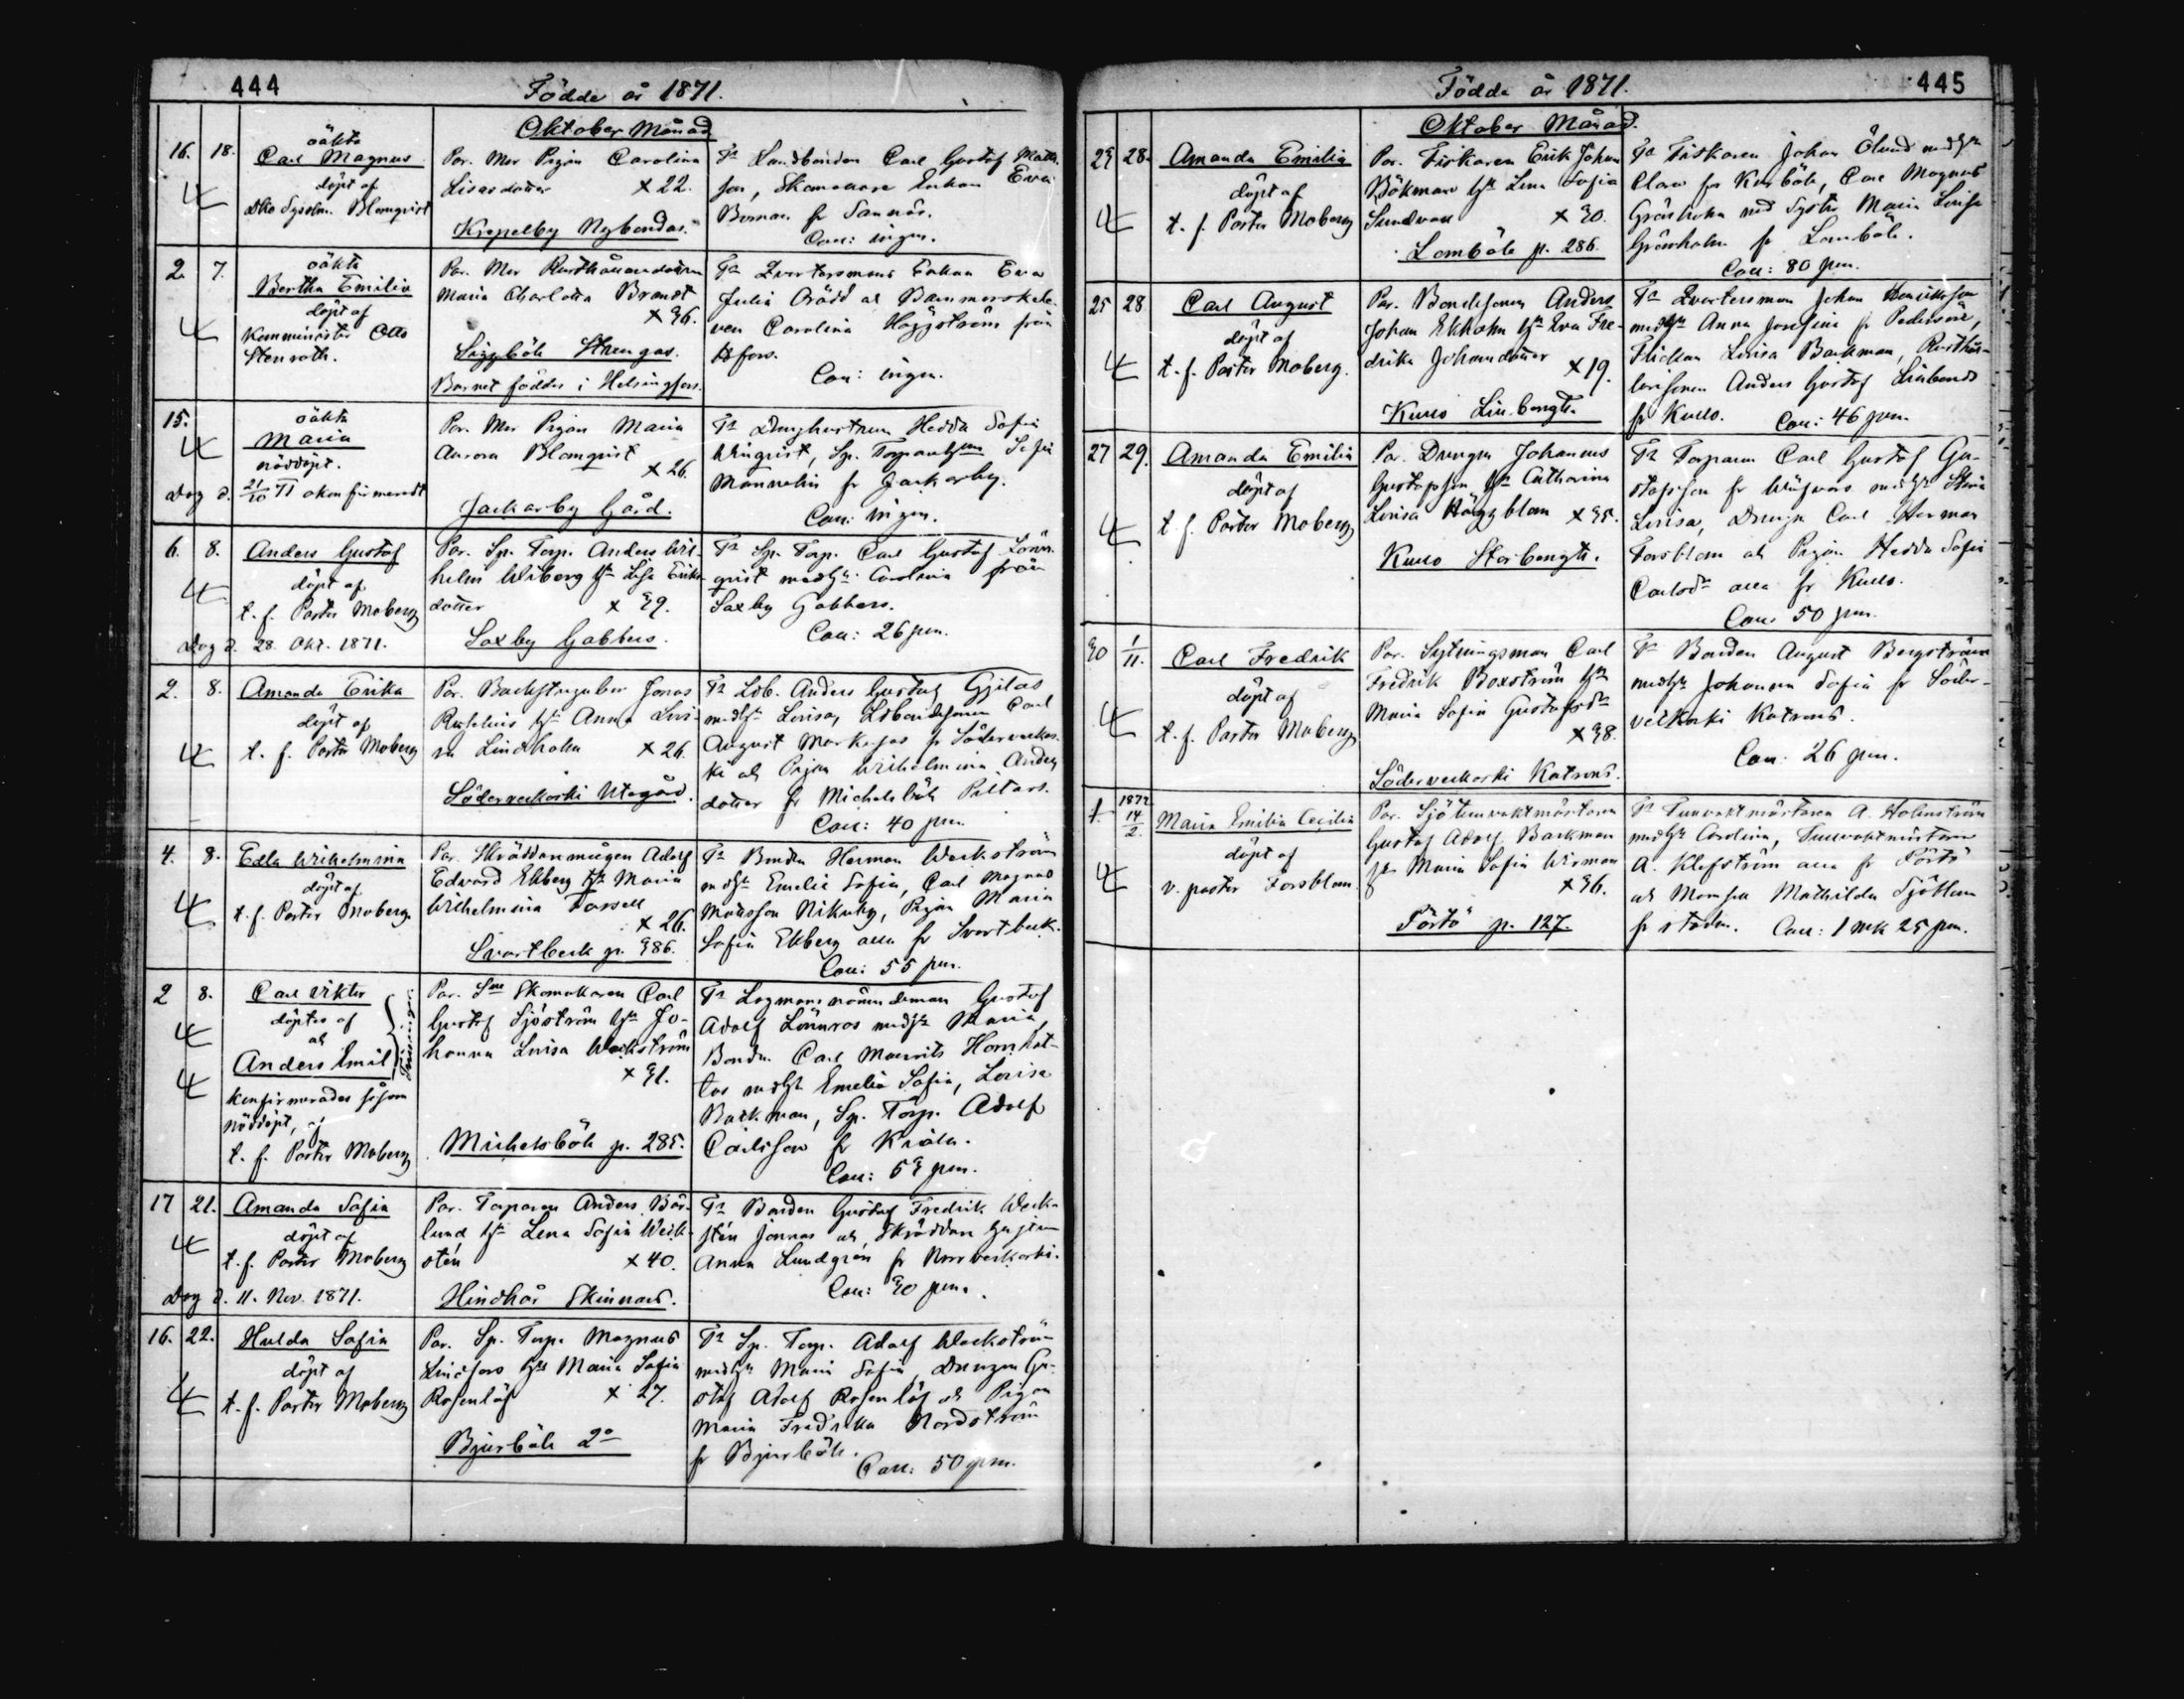 444
Födde år 1871.
Oktober Månad
16. 18.
oäkta
Carl Magnus
döpt af
Blomqvist
Par. Mor Pigan Carolina
Lisasdotter × 22.
Kjepelby Nybondas.
Ts Landbonden Carl Gustaf Math.
son, Skomakare Enkan Eva
Boman fr Sannäs.
Coll: ingen.
2. 7.
oäkta
Bertha Emilia
döpt af
Kommunister Otto
Stenroth.
Par. Mor Rusthållaredottern
Maria Charlotta Brandt
× 36.
Siggböle Strengas.
Barnet föddes i Helsingfors.
Ts Qvartersmans Enkan Eva
Julia Orädd och Barnmorske
Carolina Häggström från
Hfors.
Coll: ingen.
15.
oäkta
Maria
nöddöpt.
Dog d. 21/10 71 okonfirmeradt
Par. Mor Pigan Maria
Aurora Blomqvist
× 26.
Jackarby Gård.
Ts Drenghustrun Hedda Sofia
Winqvist, Sp. Sofia
fr Jackarby.
Coll: ingen.
6. 8.
Anders Gustaf
döpt af
t. f. Pastor Moberg
Dog d. 28. Okt. 1871.
Par. Sp. Torp. Anders Wil-
helm Wiberg hst Lisa Eriks-
dotter × 39.
Saxby Gabbers.
Ts Sp. Torp. Carl Gustaf Lönn-
qvist medhst Carolina från
Saxby Gabbers.
Coll: 26 pen.
2. 8.
Amanda Erika
döpt af
t. f. Pastor Moberg
Par. Backstugukar Jonas
hst Anna Lovi-
sa Lindholm × 26.
Söderveckoski Utegård.
Ts Ldb. Anders Gustaf Gjilas
medhst Lovisa, Carl
August Markusas fr Söderveckos-
ki och Pigan Wilhelmina Anders
dotter fr Michelsböle Pittars.
Coll: 40 pen.
4. 8.
Edla Wilhelmina
döpt af
t. f. Pastor Moberg
Par. Skräddaremågen Adolf
Edvard Ekberg hst Maria
Wilhelmina Forsell
× 26.
Svartbeck p. 386.
Ts Bonden Herman Weckström
medhst Emelie Sofia, Carl Magnus
Mattsson Nikuby, Pigan Maria
Sofia Ekberg alla fr Svartbeck.
Coll: 55 pen.
2 8.
Carl Viktor
döptes af
och
Anders Emil
Tvillingar
konfirmerades såsom
nöddöpt, af
t. f. Pastor Moberg
Par. Skomakaren Carl
Gustaf Sjöström hst Jo-
hanna Lovisa Weckström
× 31.
Michelsböle p. 285.
Ts Lagmansnämndeman Gustaf
Adolf Lönnros medhst Maria,
Bonden Carl Maurits Hornhat-
tas medhst Emelia Sofia, Lovisa
Backman, Sp. Torp. Adolf
Carlsson fr Kråkn.
Coll: 63 pen.
17 21.
Amanda Sofia
döpt af
t. f. Pastor Moberg
Dog d. 11. Nov. 1871.
Par. Torparen Anders Bär-
lund hst Lena Sofia Weck-
stén × 40.
Hindhår Skinnars.
Ts Bonden Gustaf Fredrik Weck-
stén Jonnas och Skräddare
Anna Lundgrén fr Norrveckoski.
Coll: 30 pen.
16. 22.
Hulda Sofia
döpt af
t. f. Pastor Moberg
Par. Sp. Torp. Magnus
Lindfors hst Maria Sofia
Rosenlöf × 27.
Bjurböle 2o
Ts Sp. Torp. Adolf Weckström
medhst Maria Sofia, Drengen Gu-
staf Adolf Rosenlöf och Pigan
Maria Fredrika Nordström
fr Bjurböle.
Coll: 50 pen.
445
Födde år 1871.
Oktober Månad.
23 28.
Amanda Emilia
döpt af
t. f. Pastor Moberg
Par. Fiskaren Erik Johan
Bökman hst Lena Sofia
Sundvall × 30.
Lomböle p. 286.
Ts Fiskaren Johan Ölund medhst
Clara fr Kurböle, Carl Magnus
Gråsholm med Syster Maria Lovisa
Gråsholm fr Lomböle.
Coll: 80 pen.
25 28
Carl August
döpt af
t. f. Pastor Moberg.
Par. Bondesonen Anders
Johan Ekholm hst Eva Fre-
drika Johansdotter × 19.
Kullo Lillbengts.
Ts Qvartersman Johan Henriksson
medhst Anna Josefina fr Pedersöre,
Flickan Lovisa Backman, Rusthål-
laresonen Anders Gustaf Lillbonds
fr Kullo. Coll: 46 pen.
27 29.
Amanda Emilia
döpt af
t. f. Pastor Moberg
Par. Drengen Johannes
Gustafsson hst Catharina
Lovisa Häggblom × 35.
Kullo Storbengts.
Ts Torparen Carl Gustaf Gu-
stafsson fr medhst Stina
Lovisa, Drengen Carl Herman
Forsblom och Pigan Hedda Sofia
Carlsdr alla fr Kullo.
Coll: 50 pen.
30 1/11.
Carl Fredrik
döpt af
t. f. Pastor Moberg
Par. Sytningsman Carl
Fredrik Boxström hst
Maria Sofia Gustafsdr
× 38.
Söderveckoski Katrens.
Ts Bonden August Bergström
medhst Johanna Sofia fr Söder-
veckoski Katrens.
Coll: 26 pen.
1. 1872 14/2.
Maria Emilia Cecilia
döpt af
v. pastor Forsblom.
Par. Sjötullvaktmästaren
Gustaf Adolf Backman
hst Maria Sofia Wirman
× 36.
Pörtö p. 127.
Ts Tullvaktmästaren A. Holmström
medhst Carolina, Tullvaktmästaren
A. Klefström alla fr Pörtö
och Mamsell Mathilda Sjöblom
fr staden. Coll: 1 mk 25 pen.